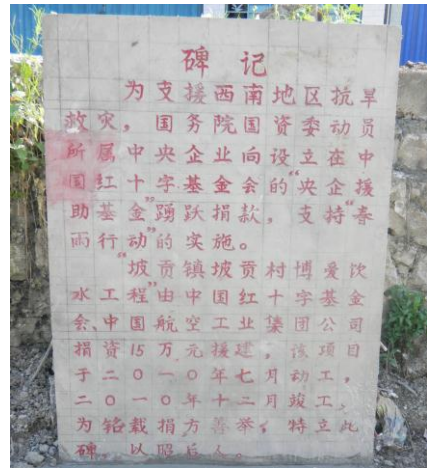 碑记
为支援西南地区抗旱
救灾，国务院国资委动员
所属中央企业向设立在中
国红十字基金会的“央企援
助基金”踊跃捐款，支持“春
雨行动”的实施。
“坡贡镇坡贡村博爱饮
水工程”由中国红十字基金
会、中国航空工业集团公司
捐资15万元援建，该项目
于二〇一〇年七月动工，
二〇一〇年十二月竣工，
为铭载捐方善举，特立此
碑，以照后人。